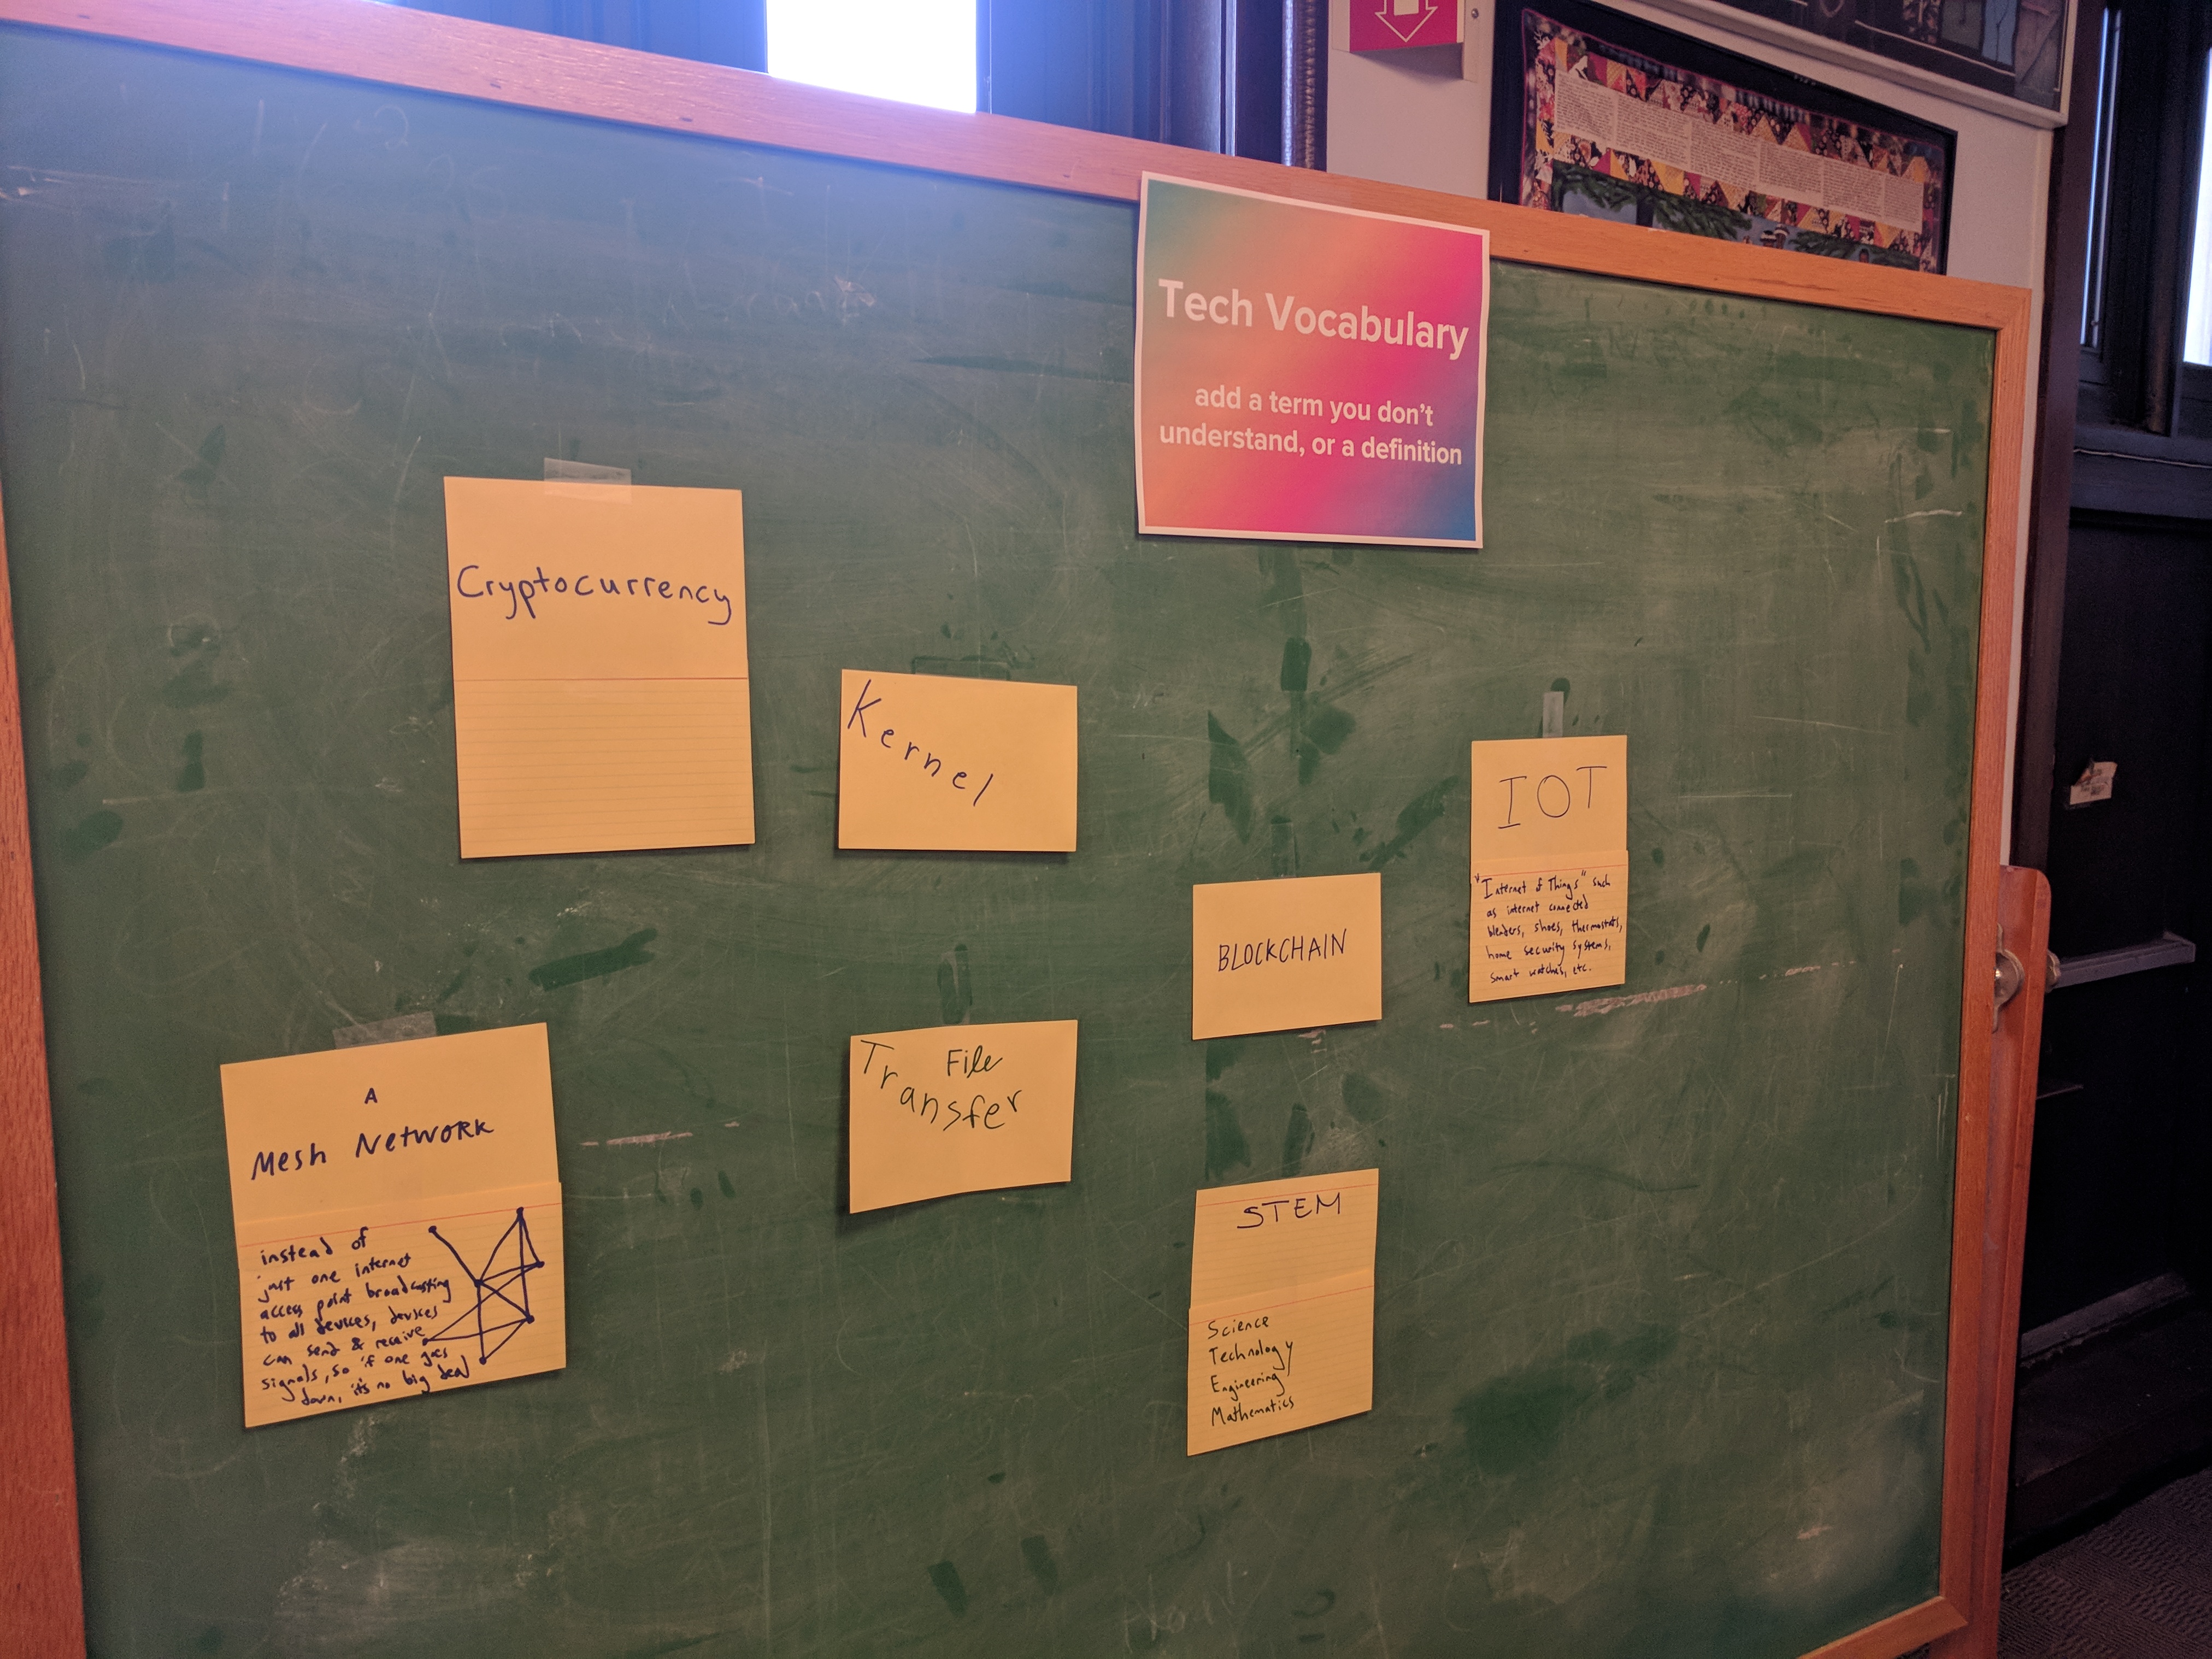 Tech Vocabulary
add a term you don't
understand, or a definition
Cryptocurrency
Kernel
IOT
"Internet of Things" such
as internet connected
blenders, shoes, thermostats,
home security systems,
smart watches, etc.
BLOCKCHAIN
A
Mesh Network
instead of
just one internet
access point broadcasting
to all devices, devices
can send & receive
signals, so if one goes
down, it's no big deal
File
Transfer
STEM
Science
Technology
Engineering
Mathematics